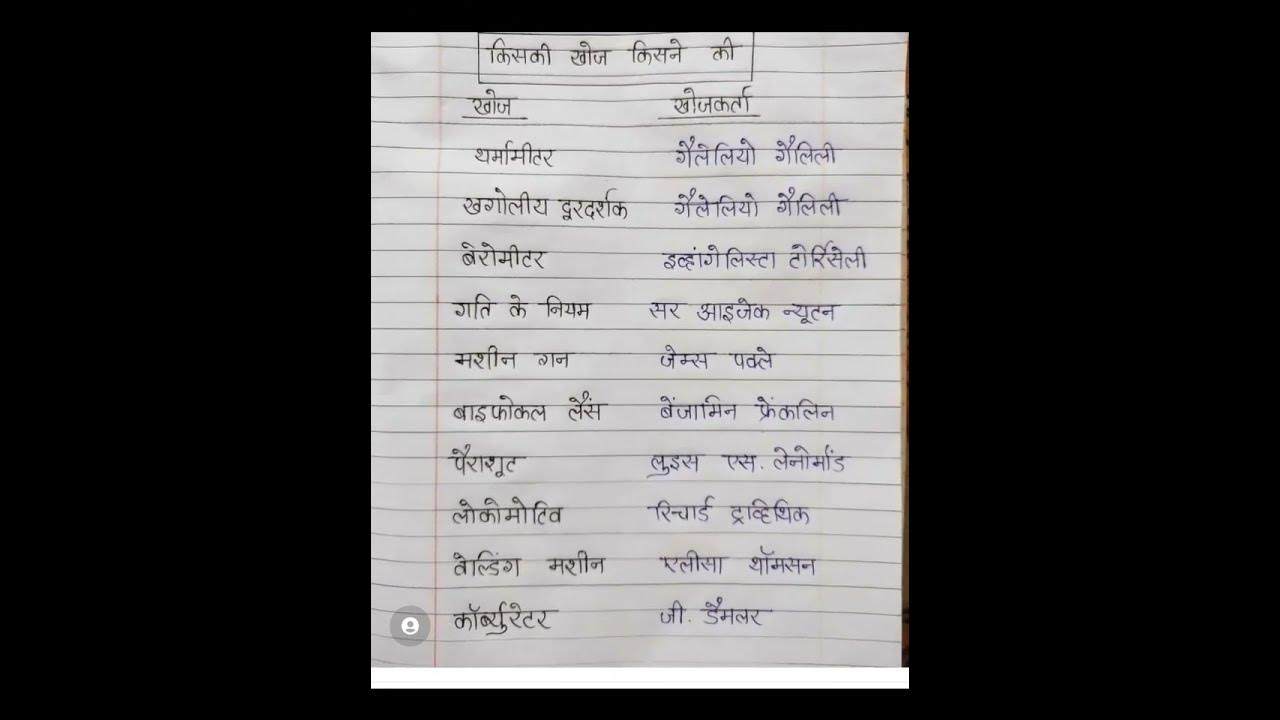 किसकी खोज किसने की
खोज खोजकर्ता
थर्मामीटर गैलेलियो गैलिली
खगोलीय दूरदर्शक गैलेलियो गैलिली
बेरोमीटर इव्हांगेलिस्टा टोर्रिसेली
गति के नियम सर आइजेक न्यूटन
मशीन गन जेम्स पक्ले
बाइफोकल लैंस बेंजामिन फ्रेंकलिन
पैराशूट लुइस एस. लेनोर्मांड
लोकोमोटिव रिचार्ड ट्राव्हिथिक
वेल्डिंग मशीन एलीसा थॉमसन
कॉर्ब्युरेटर जी. डैमलर